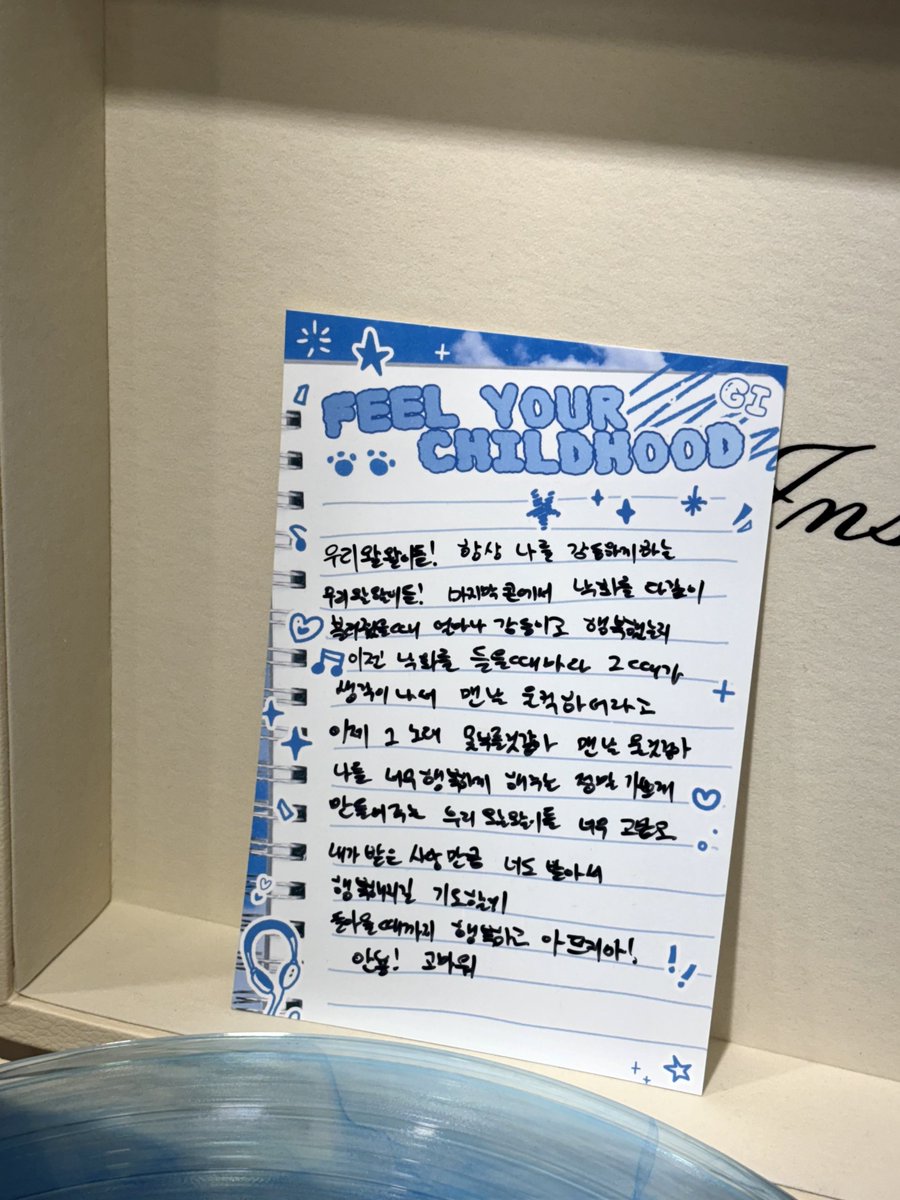 GI
FEEL YOUR
CHILDHOOD
Ins
우리 왈왈이들! 항상 나를 감동하게하는
우리 왈왈이들! 마지막 콘에서 낙화를 다같이
불러줬을때 얼마나 감동이고 행복했는지
이젠 낙화를 들을때마다 그때가
생각이 나서 맨날 울컥하더라고
이제 그 노래 못부를것같아 맨날 울것같아
나를 너무 행복하게 해주는 정말 기쁘게
만들어주는 우리 왈왈이들 너무 고맙고
내가 받은 사랑만큼 너도 받아서
행복해지길 기도할게
돌아올때까지 행복하고 아프지마!
안뇽! 고마워